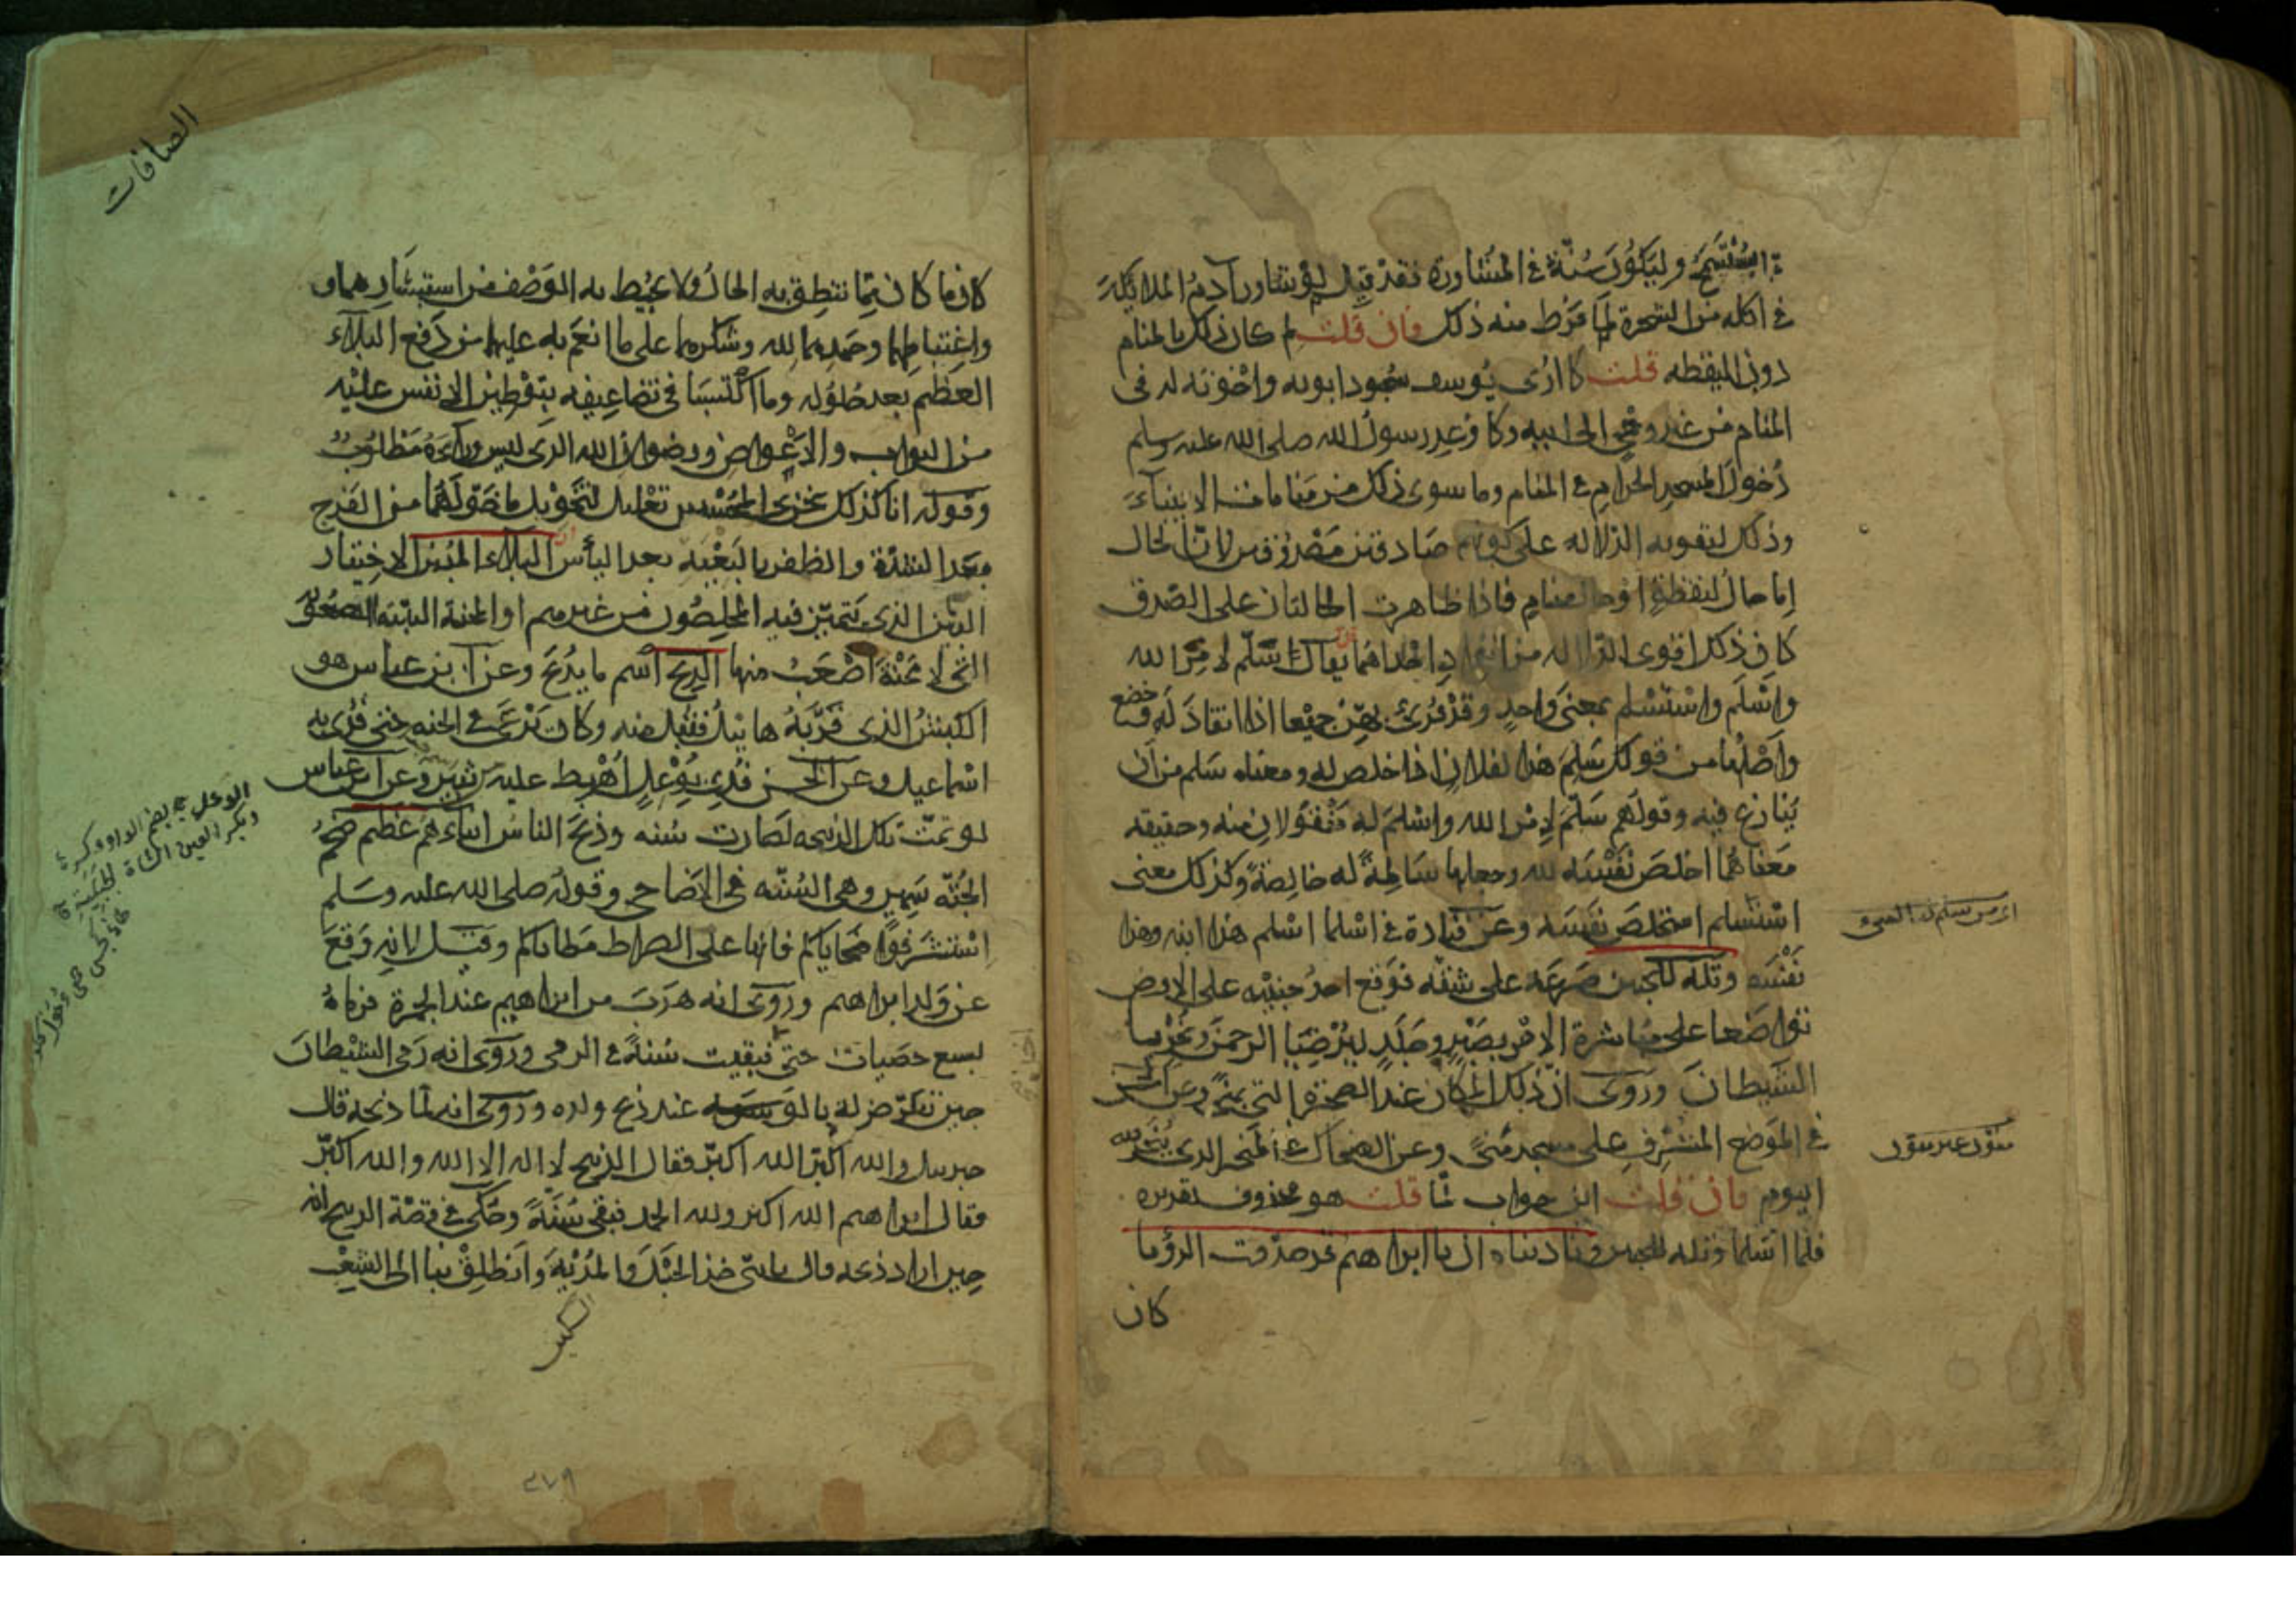 وليكون سنة في المشاورة فقد قيل لو شاور آدم الملائكة
في اكله من الشجرة لما فرط منه ذلك فان قلت لم كان ذلك بالمنام
دون اليقظه قلت كما ارى يوسف سجود ابويه واخوته له في
المنام من غير وحي الى ابيه وكما وعد رسول الله صلى الله عليه وسلم
دخول المسجد الحرام في المنام وما سوى ذلك من منامات الانبياء
وذلك لتقويه الدلاله على كونهم صادقين مصدوقين لان الحال
اما حال يقظة او حال منام فاذا تظاهرت الحالتان على الصدق
كان ذلك اقوى للدلاله من انفراد احداهما يقال سلم لامر الله
واسلم واستسلم بمعنى واحد وقد قرئ بهن جميعا اذا انقاد له وخضع
واصلها من قولك سلم هذا لفلان اذا خلص له ومعناه سلم من ان
ينازع فيه وقولهم سلم لامر الله واسلم له منقولان منه وحقيقه
معناهما اخلص نفسه لله وجعلها سالمة له خالصة وكذلك معنى
استسلم استخلص نفسه وعن قتادة في اسلما اسلم هذا ابنه وهذا
نفسه وتله للجبين صرعه على شقه فوقع احد جنبيه على الارض
تواضعا على مباشرة الامر بصبر وجلد ليرضيا الرحمن ويخزيا
الشيطان وروى ان ذلك المكان عند الصخرة التي بمنى وعن الحسن
في الموضع المشرف على مسجد منى وعن الضحاك في المنحر الذي ينحر فيه
اليوم فان قلت اين جواب لما قلت هو محذوف تقديره
فلما اسلما وتله للجبين وناديناه ان يا ابراهيم قد صدقت الرؤيا
كان
الصافات
كان ما كان مما تنطق به الحال ولا يحيط به الوصف من استبشارهما و
واغتباطهما وحمدهما لله وشكرهما على ما انعم به عليهما من دفع البلاء
العظيم بعد حلوله وما اكتسبا في تضاعيفه بتوطين الانفس عليه
من الثواب والاعواض ورضوان الله الذي ليس وراءه مطلوب
وقوله انا كذلك نجزى المحسنين تعليل لتخويل ما خولهما من الفرج
بعد الشدة والظفر بالبغيه بعد اليأس البلاء المبين الاختبار
البين الذي يتميز فيه المخلصون من غيرهم او المحنة البينه الصعوبة
التي لا محنة اصعب منها الذبح اسم ما يذبح وعن ابن عباس هو
الكبش الذي قربه هابيل فقبل منه وكان يرعى في الجنه حتى فدى به
اسماعيل وعن الحسن فدى بوعل اهبط عليه من ثبير وعن ابن عباس
لو تمت تلك الذبيحه لصارت سنه وذبح الناس ابناءهم عظيم ضخم
الجثة سمين وهي السنه في الاضاحي وقوله صلى الله عليه وسلم
استشرفوا ضحاياكم فانها على الصراط مطاياكم وقيل لانه وقع
عن ولد ابراهيم وروى انه هرب من ابراهيم عند الجمرة فرماه
بسبع حصيات حتى فبقيت سنة في الرمى وروى انه رمى الشيطان
حين تعرض له بالوسوسه عند ذبح ولده وروى انه لما ذبحه قال
جبريل الله اكبر الله اكبر فقال الذبيح لا اله الا الله والله اكبر
فقال ابراهيم الله اكبر ولله الحمد فبقى سنة وحكى في قصة الذبيح انه
حين اراد ذبحه قال يا بنى خذ الحبل والمدية وانطلق بنا الى الشعب
٣٧٩